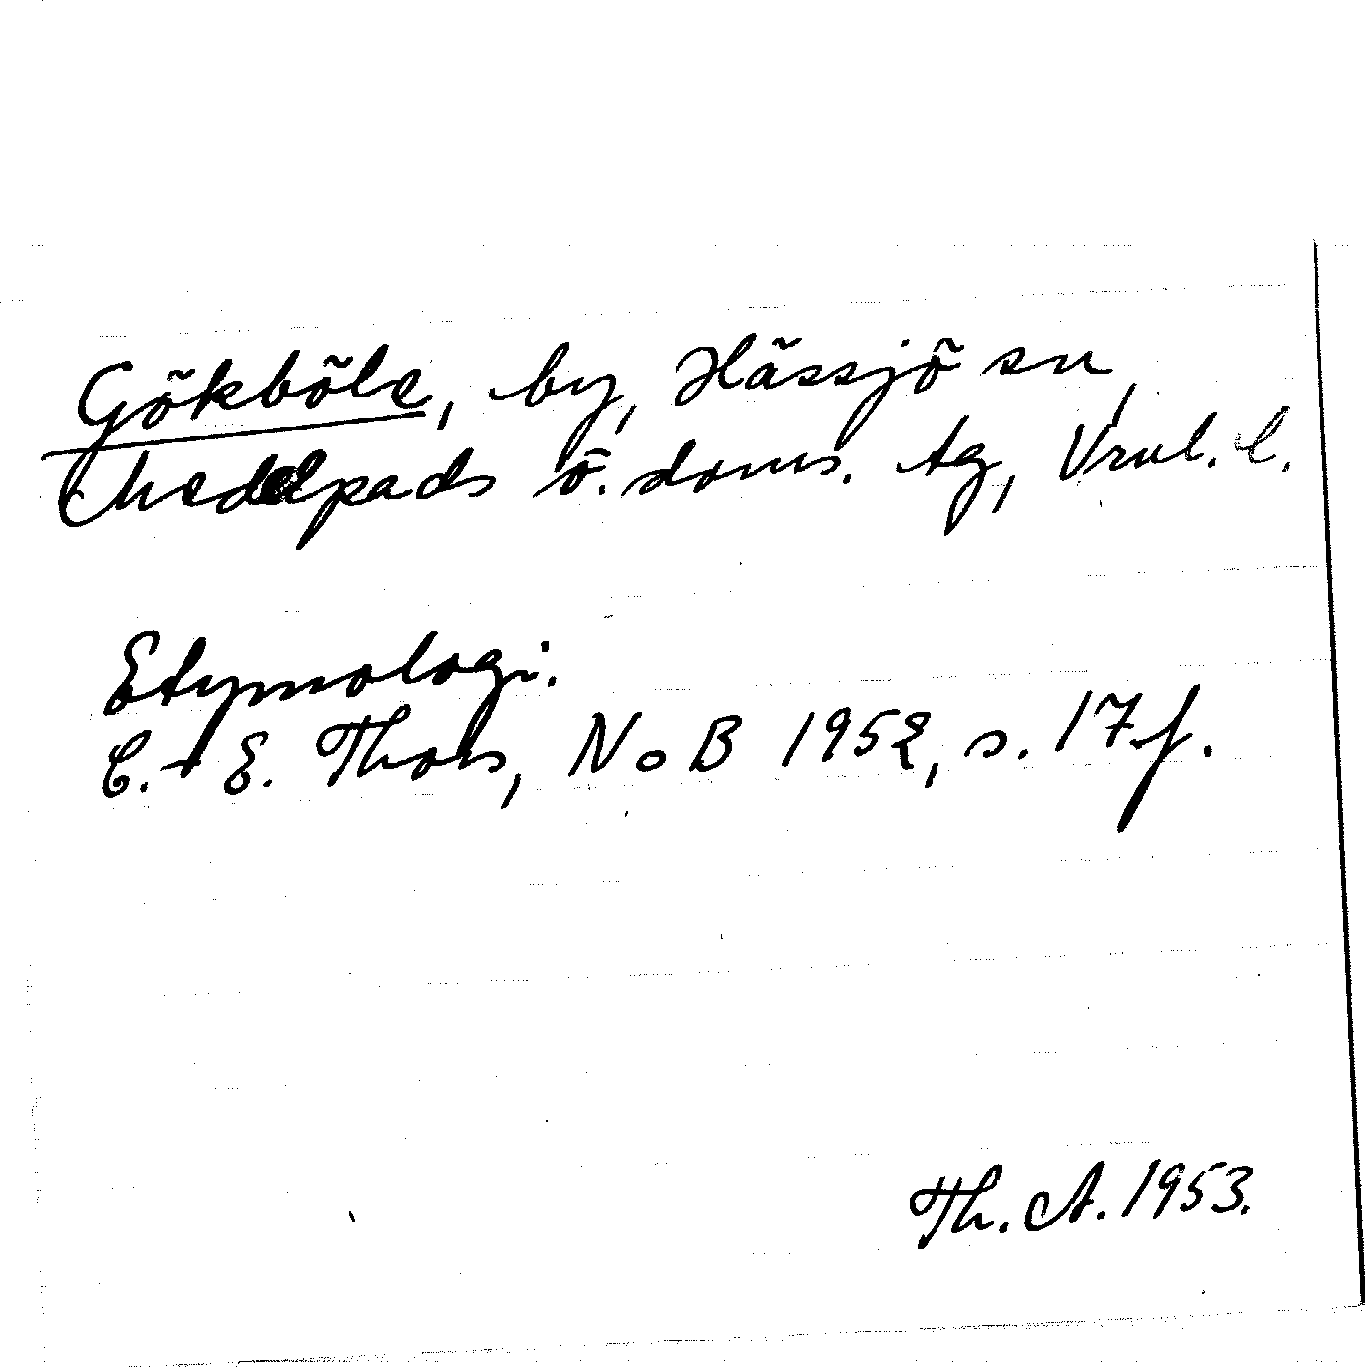 Gökböle, by, Hässjö sn,
Medelpads ö. doms. tg, Vrnl. l.
Etymologi.
C.-E. Thors, NoB 1952, s. 17 f.
Th. A. 1953.